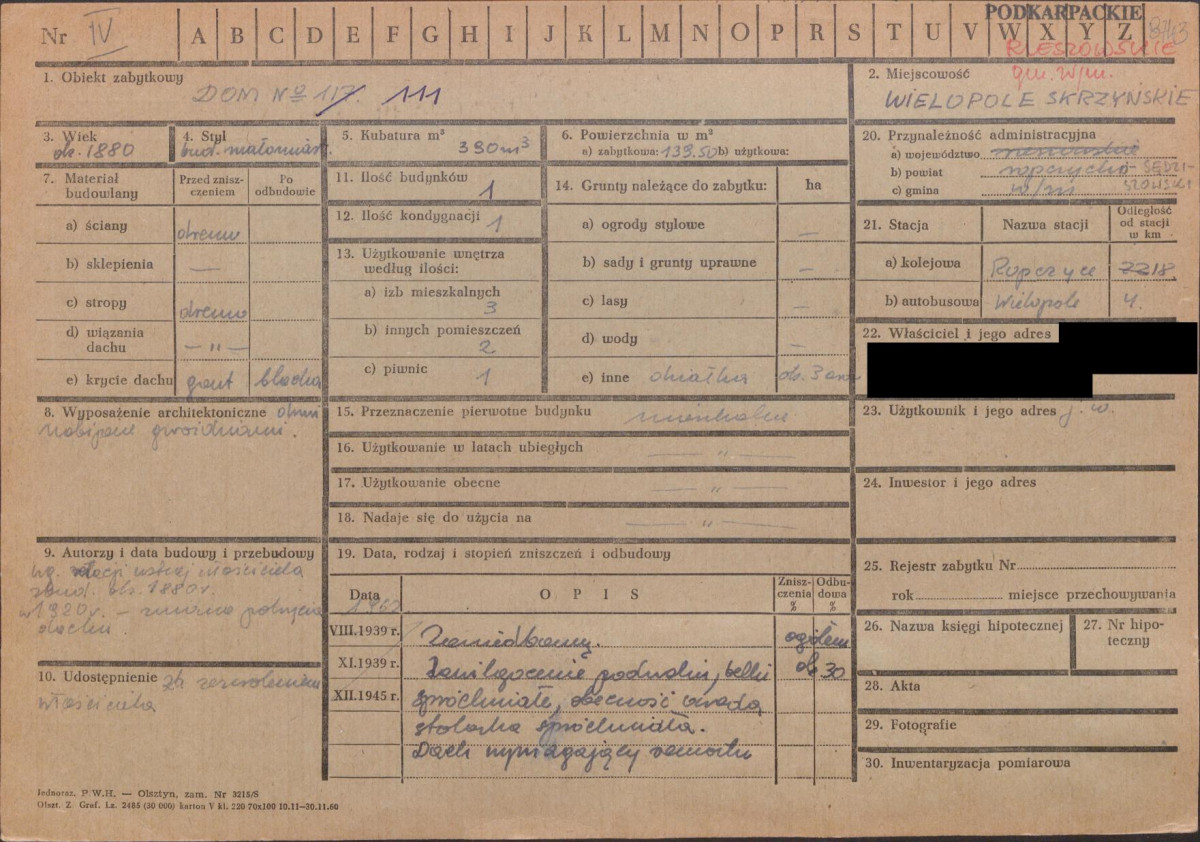 PODKARPACKIE
Nr IV A B C D E F G H I J K L M N O P R S T U V W X Y Z
RZESZOWSKIE
gm. w/m.
1. Obiekt zabytkowy
DOM Nº 117. 111
2. Miejscowość
WIELOPOLE SKRZYŃSKIE
3. Wiek
ok. 1880
4. Styl
bud. małomiast.
5. Kubatura m³
330 m³
6. Powierzchnia w m²
a) zabytkowa: 139.50 b) użytkowa:
20. Przynależność administracyjna
a) województwo rzeszowskie
b) powiat ropczycko-SĘDZI-
SZOWSKI
c) gmina w/m
7. Materiał budowlany
Przed znisz-
czeniem
Po
odbudowie
a) ściany drewno
b) sklepienia —
c) stropy drewno
d) wiązania
dachu — „ —
e) krycie dachu gont blacha
11. Ilość budynków
1
12. Ilość kondygnacji
1
13. Użytkowanie wnętrza
według ilości:
a) izb mieszkalnych
3
b) innych pomieszczeń
2
c) piwnic 1
14. Grunty należące do zabytku: ha
a) ogrody stylowe —
b) sady i grunty uprawne —
c) lasy —
d) wody —
e) inne działka ok. 3 ary
21. Stacja Nazwa stacji Odległość
od stacji
w km
a) kolejowa Ropczyce 22 18.
b) autobusowa Wielopole 4.
22. Właściciel i jego adres
8. Wyposażenie architektoniczne drzwi
nabijane gwoździami.
15. Przeznaczenie pierwotne budynku mieszkalne
16. Użytkowanie w latach ubiegłych — „ —
17. Użytkowanie obecne — „ —
18. Nadaje się do użycia na — „ —
23. Użytkownik i jego adres j. w.
24. Inwestor i jego adres
9. Autorzy i data budowy i przebudowy
wg. relacji ustnej właściciela
zbud. ok. 1880 r.
w 1920 r. – zmiana pokrycia
dachu.
10. Udostępnienie za zezwoleniem
właściciela
19. Data, rodzaj i stopień zniszczeń i odbudowy
Data OPIS Znisz-
czenia
% Odbu-
dowa
%
VIII.1939 r. Zaniedbany. ogółem
XI.1939 r. Zawilgocenie podwalin, belki ok 30
XII.1945 r. spróchniałe, obecność owada
stolarka spróchniała.
Dach wymagający remontu
25. Rejestr zabytku Nr
rok miejsce przechowywania
26. Nazwa księgi hipotecznej
27. Nr hipo-
teczny
28. Akta
29. Fotografie
30. Inwentaryzacja pomiarowa
Jednoraz. P.W.H. — Olsztyn, zam. Nr 3215/S
Olszt. Z. Graf. Lz. 2485 (30 000) karton V kl. 220 70x100 10.11—30.11.60